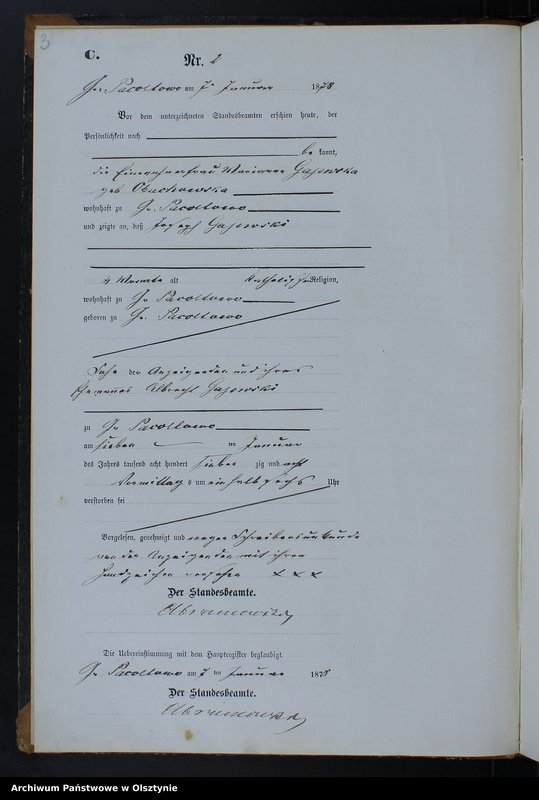 3
C.
Nr. 2
Gr. Pacoltowo am 7. Januar 1878
Vor dem unterzeichneten Standesbeamten erschien heute, der
Persönlichkeit nach
be kannt,
die Einwohnerfrau Marianne Gajewska
geb. Obuchowska
wohnhaft zu Gr. Pacoltowo
und zeigte an, daß Joseph Gajewski
4 Monate alt katholischer Religion,
wohnhaft zu Gr. Pacoltowo
geboren zu Gr. Pacoltowo
Sohn der Anzeigenden und ihres
Ehemannes Albrecht Gajewski
zu Gr. Pacoltowo
am sieben ten Januar
des Jahres tausend acht hundert sieben zig und acht
Vormittags um ein halb sechs Uhr
verstorben sei
Vorgelesen, genehmigt und wegen Schreibensunkunde
von der Anzeigenden mit ihren
Handzeichen versehen x x x
Der Standesbeamte.
Abramowski
Die Uebereinstimmung mit dem Hauptregister beglaubigt.
Gr. Pacoltowo am 7 ten Januar 1878
Der Standesbeamte.
Abramowski
Archiwum Państwowe w Olsztynie